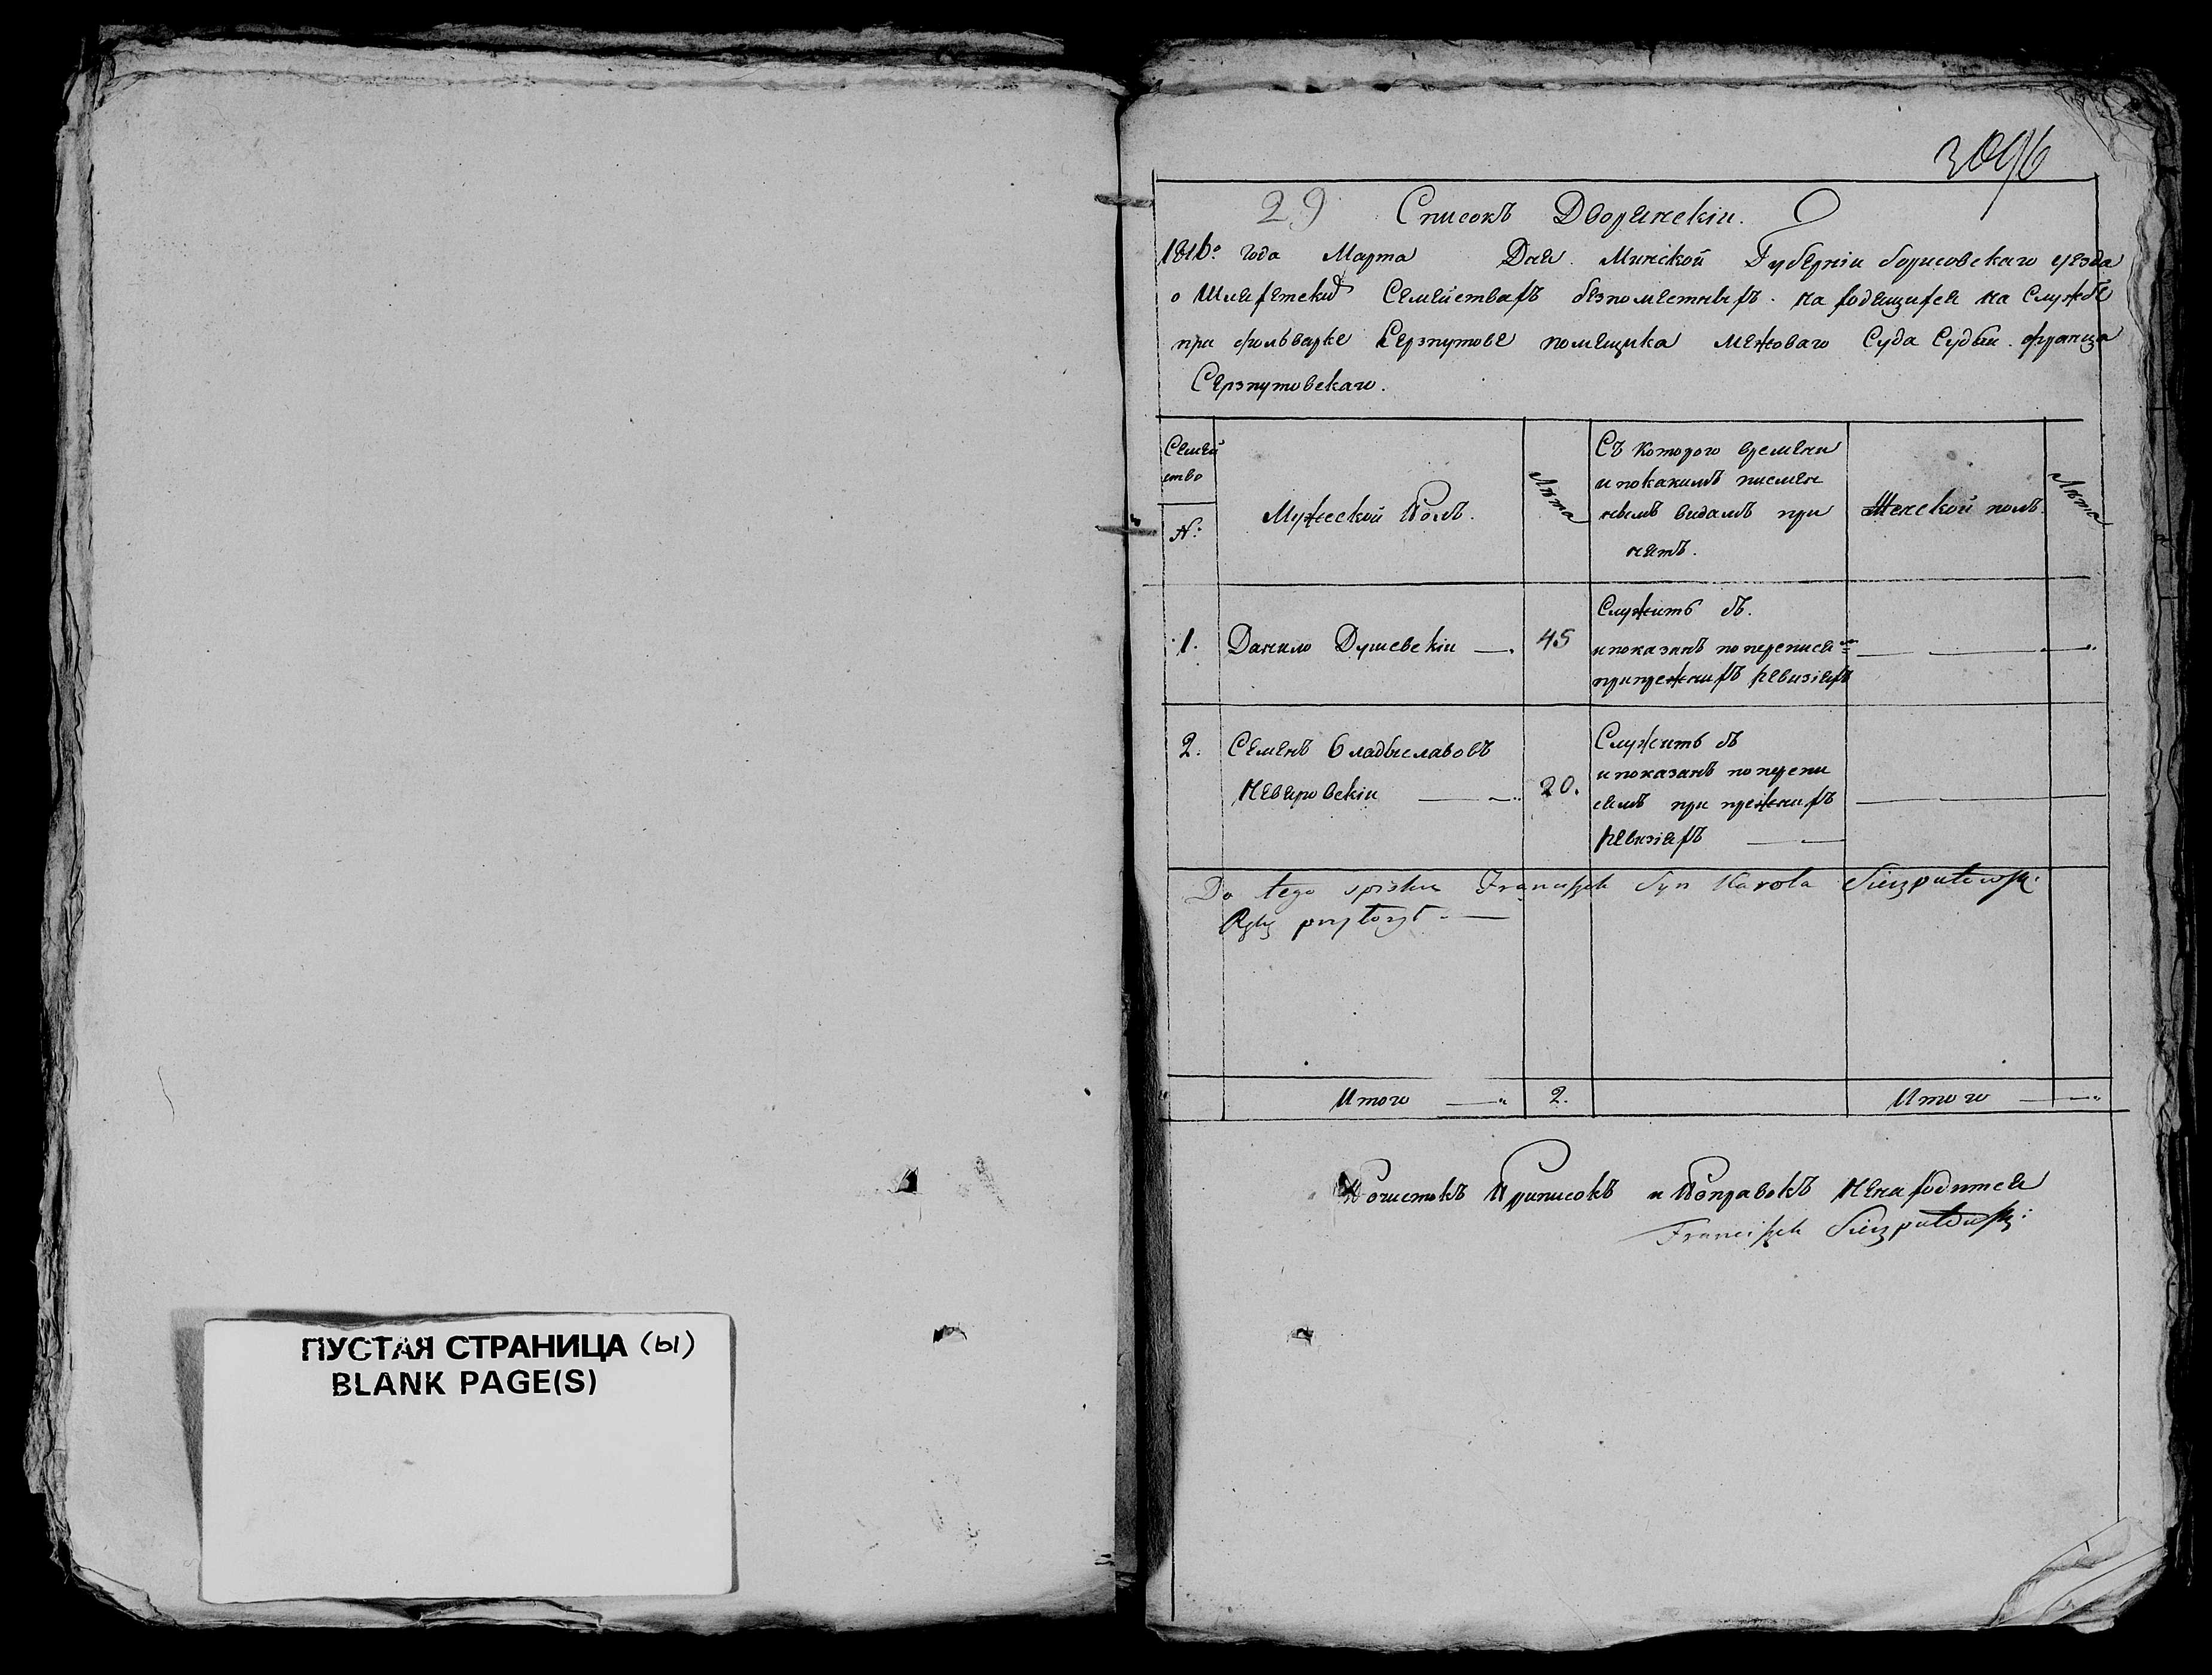 ПУСТАЯ СТРАНИЦА (ы)
BLANK PAGE(S)
29 Списокъ Дворянскіи.
1816го года Марта Дня. Минской Губерніи борисовскаго уезда
о Шляхетскихъ Семействахъ безпоместныхъ. находящихся на Службе
при фольварке Серзпутове помещика межоваго Суда Судьи. франца
Серзпутовскаго.
Семей
ство
N:
Мужеской Полъ.
Лѣта
Съ которого времени
и покакимъ писмен
нымъ видамъ при
нятъ.
Женской полъ.
Лѣта
1. Данило Душевскіи 45
Служитъ
и показанъ по переписи
припрежнихъ ревизіяхъ
2. Семенъ Владыславовъ
Невяровскіи 20.
Служитъ
и показанъ по перепи
сямъ при прежнихъ
ревизіяхъ
Do tego spisku Franciszek Syn Karola Sierzputowski
Rękę przyłożył
Итого 2. Итого
Почистокъ Приписокъ и Поправокъ Ненаходится
Franciszek Sierzputowski